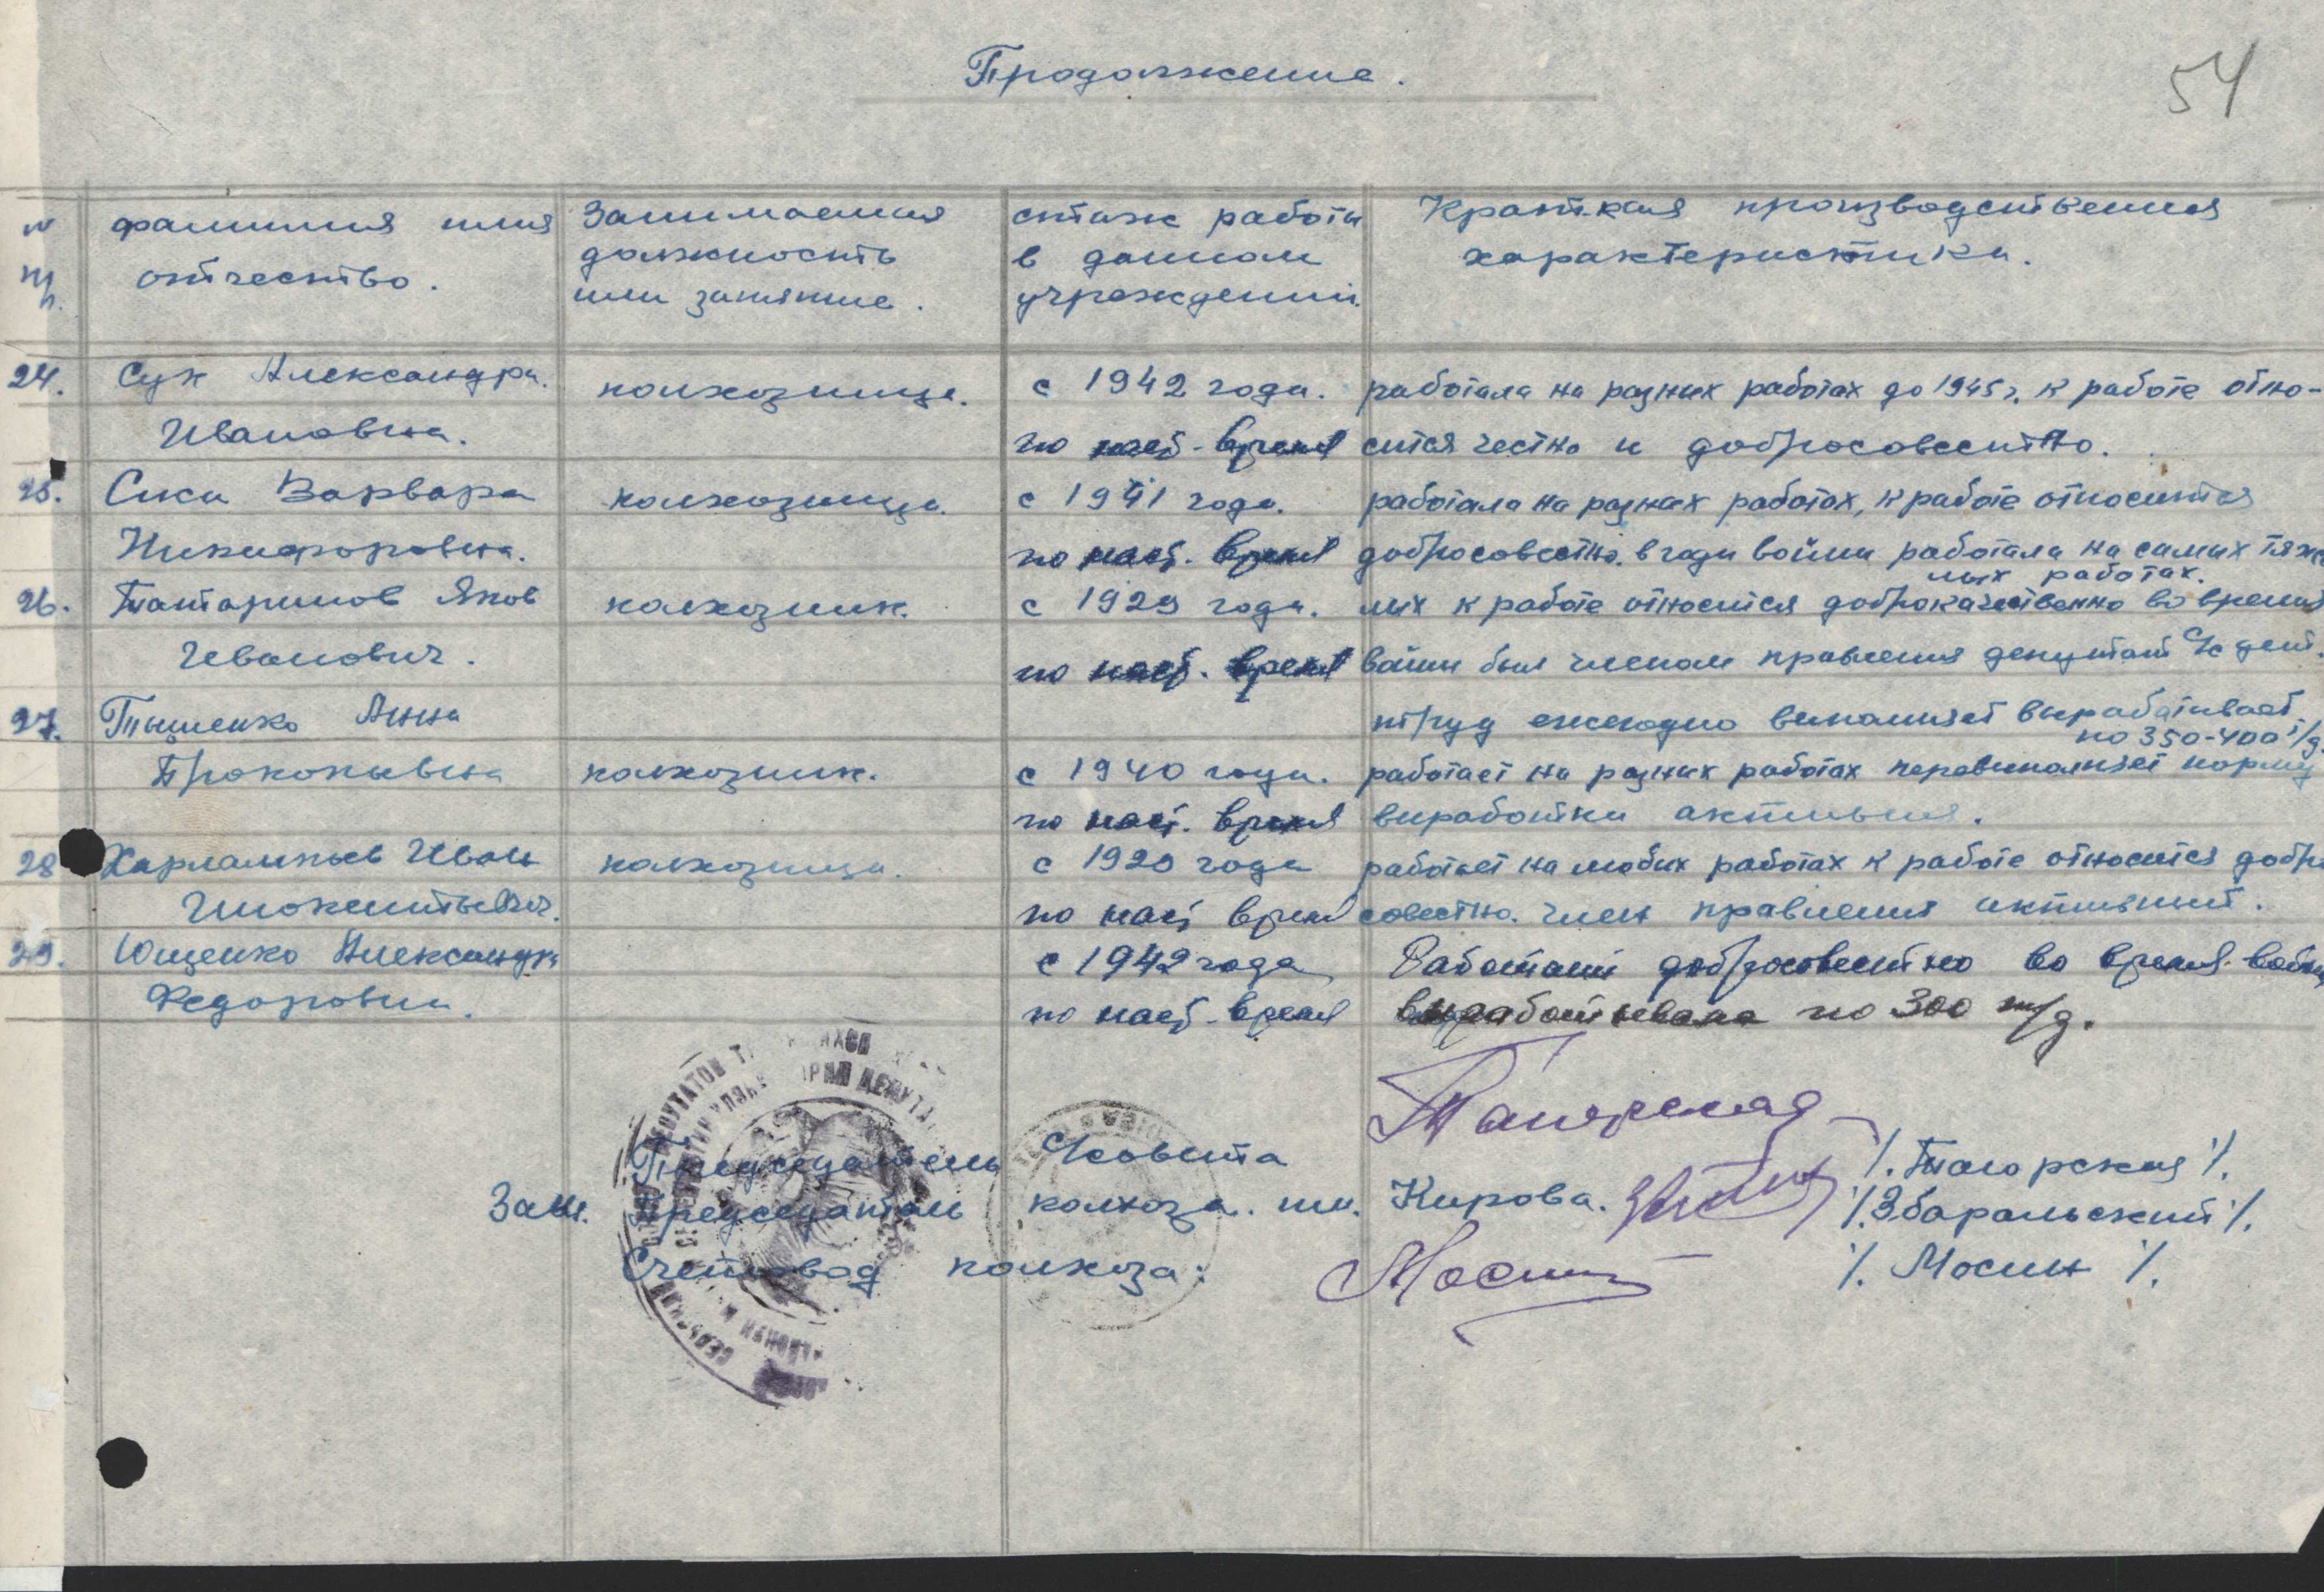 Продолжение.
54
№ пп. фамилия имя отчество. Занимаемая должность или занятие. стаж работы в данном учреждении. Краткая производственная характеристика.
24. Сук Александра. колхозница. с 1942 года. работала на разных работах до 1945 г. к работе отно-
Ивановна. по наст. время сится честно и добросовестно.
25. Сика Варвара колхозница. с 1941 года. работала на разных работах, к работе относится
Никифоровна. по наст. время добросовестно. в годы войны работала на самых тяже
лых работах.
26. Татаринов Яков колхозник. с 1929 года. лых к работе относится доброкачественно во время
Иванович. по наст. время вайны был членом правления депутант
27. Тышенко Анна труд ежегодно выполняет вырабатывает
по 350-400 т/д.
Прокопьевна колхозник. с 1940 года. работает на разных работах перевиполняет норму
по наст. время выработки активная.
28 Харлампьев Иван колхозница. с 1929 года работает на любых работах к работе относится добро
Инокентьевич. по наст время совестно. член правления активный.
29. Ющенко Александра с 1942 года Работает добросовестно во время войны
Федоровна. по наст. время вырабатывала по 300 т/д.
Председатель С/совета /.Тагорская/.
Зам. Председатель колхоза. им. Кирова. /.Збаральский/.
Счетовод колхоза: Мосин /. Мосин /.